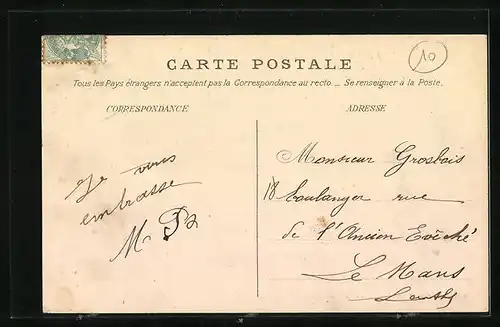 10
CARTE POSTALE
Tous les Pays étrangers n'acceptent pas la Correspondance au recto. _ Se renseigner à la Poste.
CORRESPONDANCE
ADRESSE
Je vous
embrasse
Monsieur Grosbois
18 boulanger rue
de l'Ancien Evêché
Le Mans
Sarthe